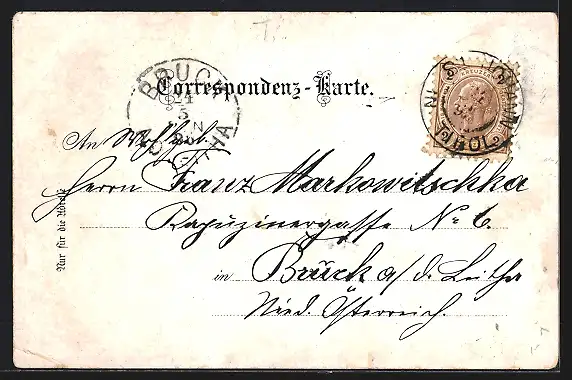 Correspondenz-Karte.
BRUCK
24
5
KREUZER
TIROL
An
Herrn Franz Markowitschka
Kapuzinergasse No 6.
in Bruck a/d. Leitha
Nied. Österreich.
Nur für die Adresse